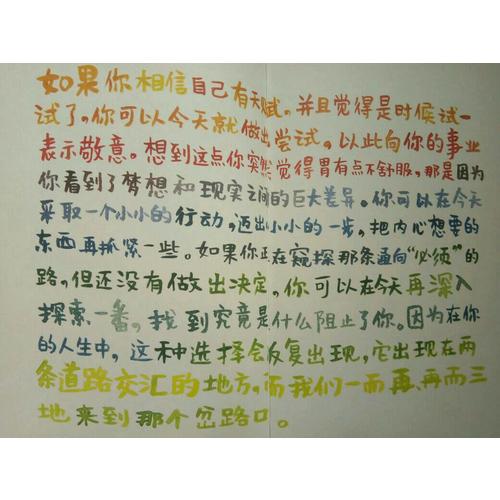 如果你相信自己有天赋。并且觉得是时候试一
试了。你可以今天就做出尝试。以此向你的事业
表示敬意。想到这点你突然觉得胃有点不舒服，那是因为
你看到了梦想和现实之间的巨大差异。你可以在今天
采取一个小小的行动，迈出小小的一步，把内心想要的
东西再抓紧一些。如果你正在窥探那条通向“必须”的
路，但还没有做出决定，你可以在今天再深入
探索一番，找到究竟是什么阻止了你。因为在你
的人生中，这种选择会反复出现，它出现在两
条道路交汇的地方，而我们一而再、再而三
地来到那个岔路口。